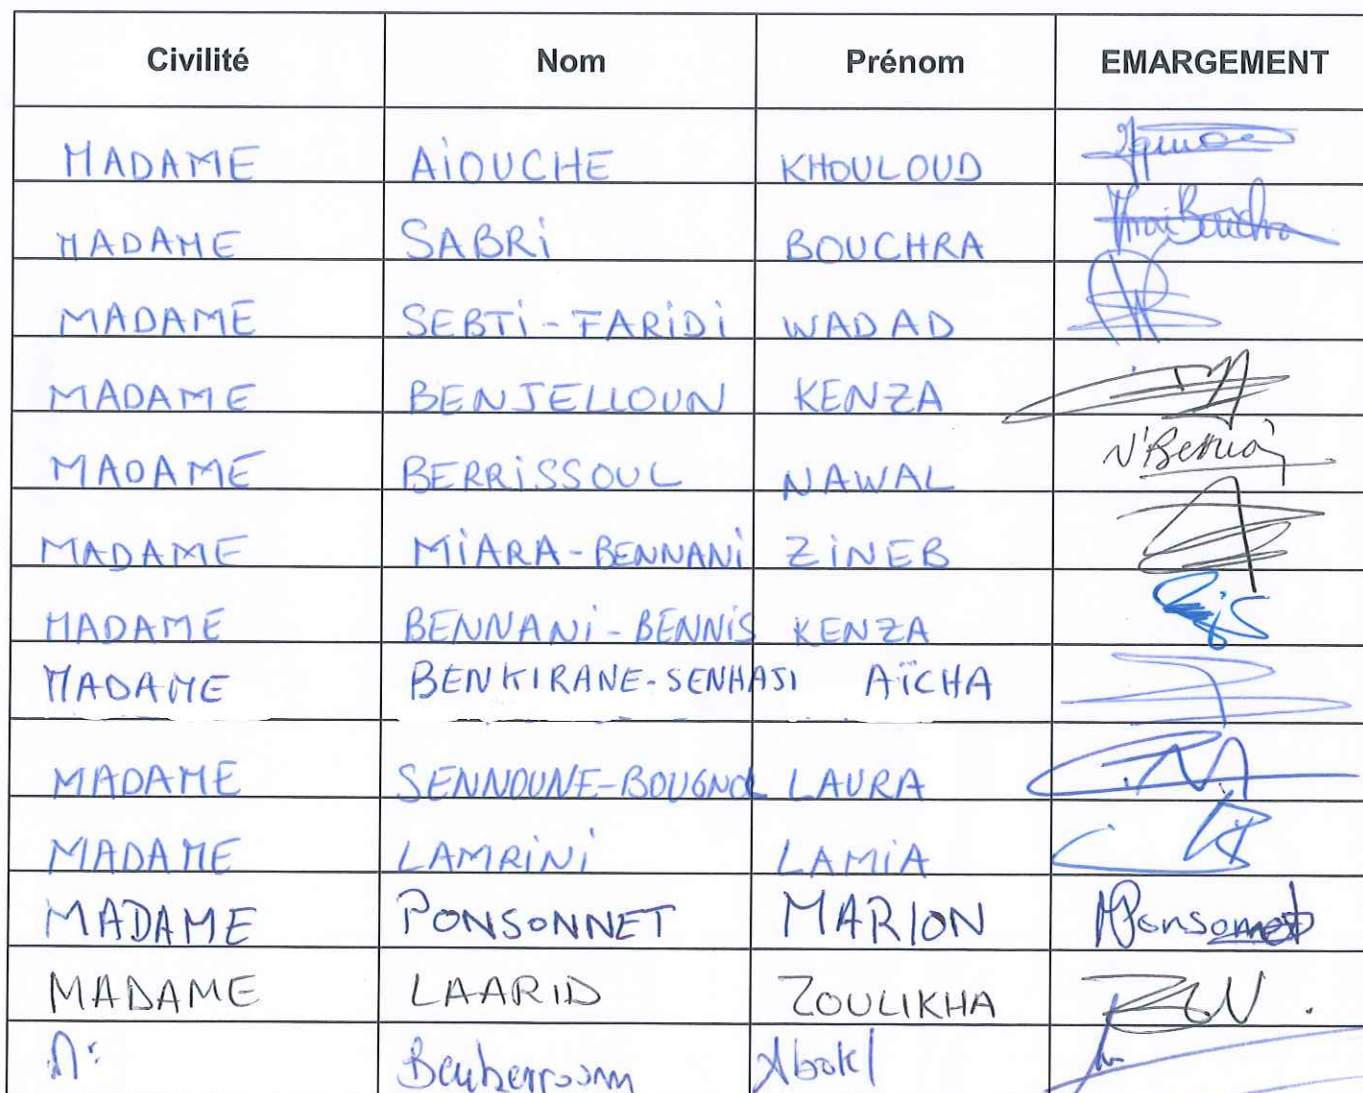 Civilité Nom Prénom EMARGEMENT
MADAME AïOUCHE KHOULOUD
MADAME SABRi BOUCHRA
MADAME SEBTi-FARiDi WADAD
MADAME BENJELLOUN KENZA
MADAME BERRiSSOUL NAWAL
MADAME MiARA-BENNANi ZiNEB
MADAME BENNANi-BENNiS KENZA
MADAME BENKIRANE-SENHAJI AÏCHA
MADAME SENNOUNE-BOUGNOL LAURA
MADAME LAMRiNi LAMiA
MADAME PONSONNET MARION MPonsonnet
MADAME LAARID ZOULIKHA